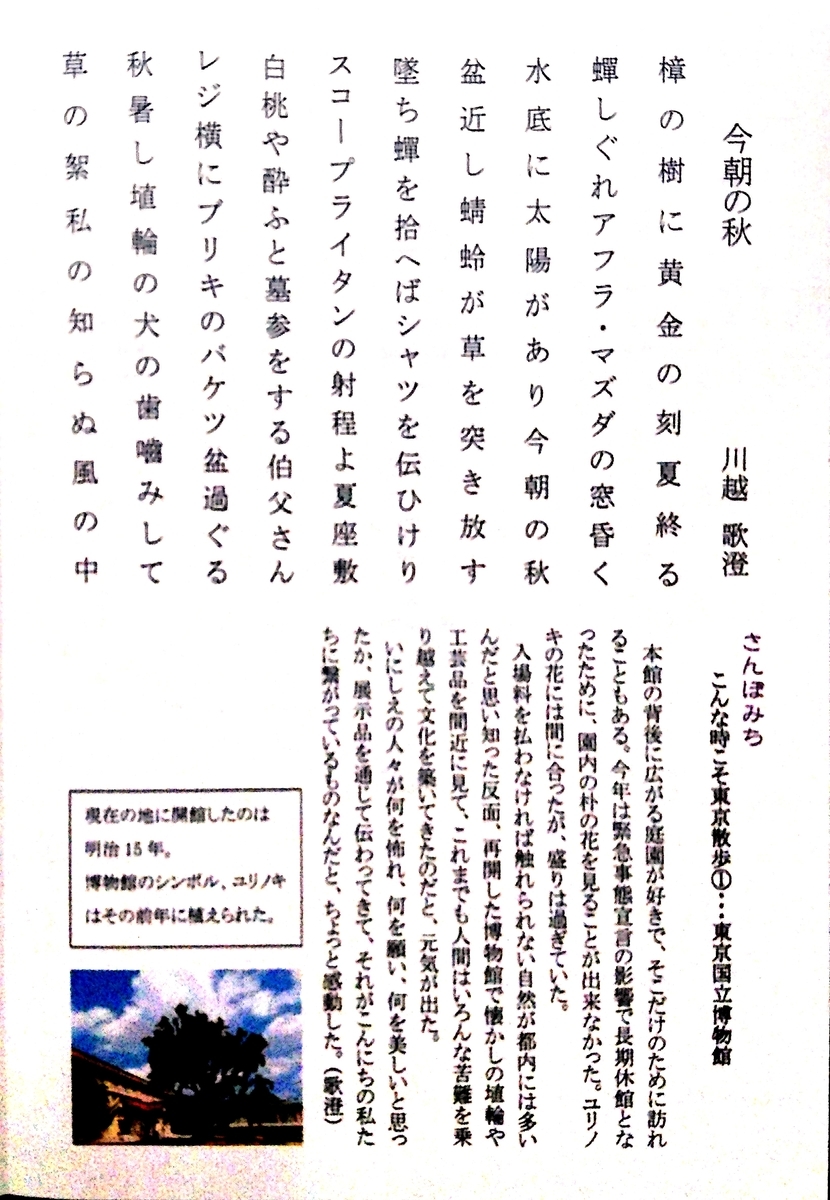 今朝の秋
川越 歌澄
樟の樹に黄金の刻夏終る
蟬しぐれアフラ・マズダの窓昏く
水底に太陽があり今朝の秋
盆近し蜻蛉が草を突き放す
墜ち蟬を拾へばシャツを伝ひけり
スコープライタンの射程よ夏座敷
白桃や酔ふと墓参をする伯父さん
レジ横にブリキのバケツ盆過ぐる
秋暑し埴輪の犬の歯嚙みして
草の絮私の知らぬ風の中
さんぽみち
こんな時こそ東京散歩①…東京国立博物館
本館の背後に広がる庭園が好きで、そこだけのために訪れ
ることもある。今年は緊急事態宣言の影響で長期休館とな
ったために、園内の朴の花を見ることが出来なかった。ユリノ
キの花には間に合ったが、盛りは過ぎていた。
入場料を払わなければ触れられない自然が都内には多い
んだと思い知った反面、再開した博物館で懐かしの埴輪や
工芸品を間近に見て、これまでも人間はいろんな苦難を乗
り越えて文化を築いてきたのだと、元気が出た。
いにしえの人々が何を怖れ、何を願い、何を美しいと思っ
たか、展示品を通して伝わってきて、それがこんにちの私た
ちに繋がっているものなんだと、ちょっと感動した。（歌澄）
現在の地に開館したのは
明治15年。
博物館のシンボル、ユリノキ
はその前年に植えられた。